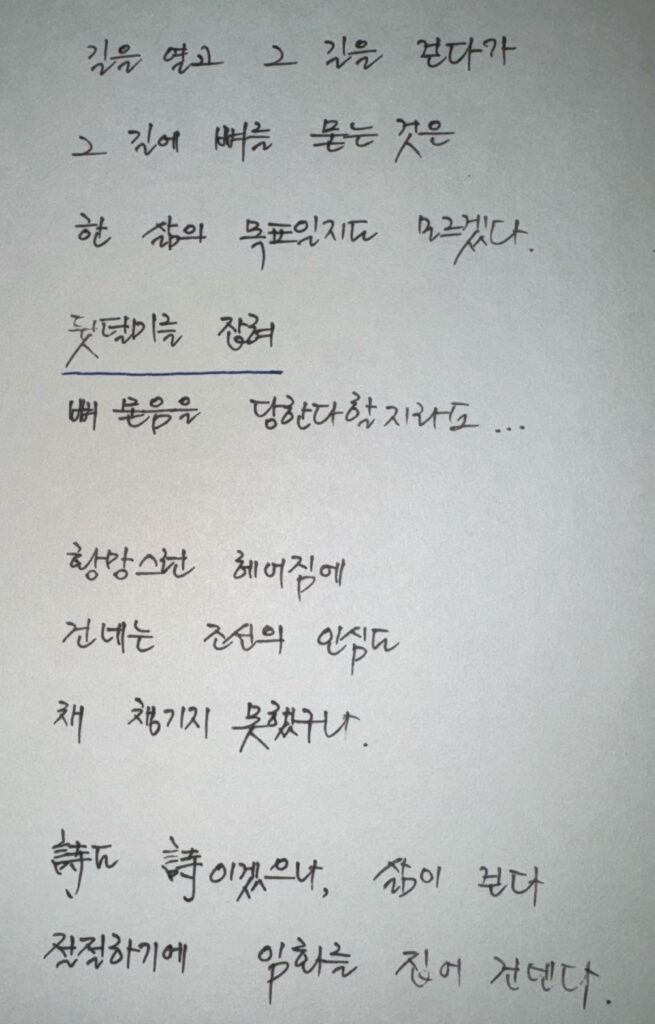 길을 열고 그 길을 걷다가
그 길에 뼈를 묻는 것은
한 삶의 목표일지도 모르겠다.
뒷덜미를 잡혀
뼈 묻음을 당한다할지라도...
황망스런 헤어짐에
건네는 조선의 인심도
채 챙기지 못했구나.
詩도 詩이겠으나, 삶이 걷다
절절하기에 임화를 집어 건넨다.